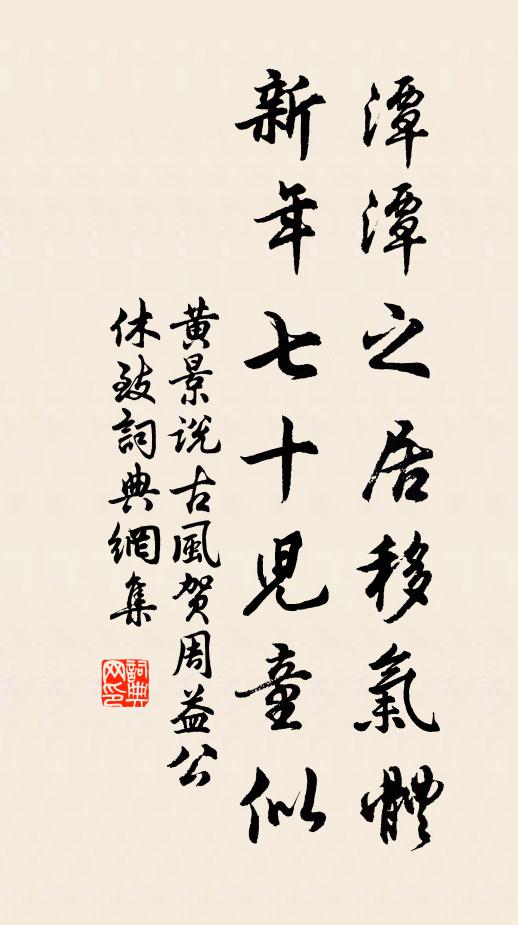 潭潭之居移氣體
新年七十児童似
黃景说古風贺周益公
休致詞典網集
詞典网印